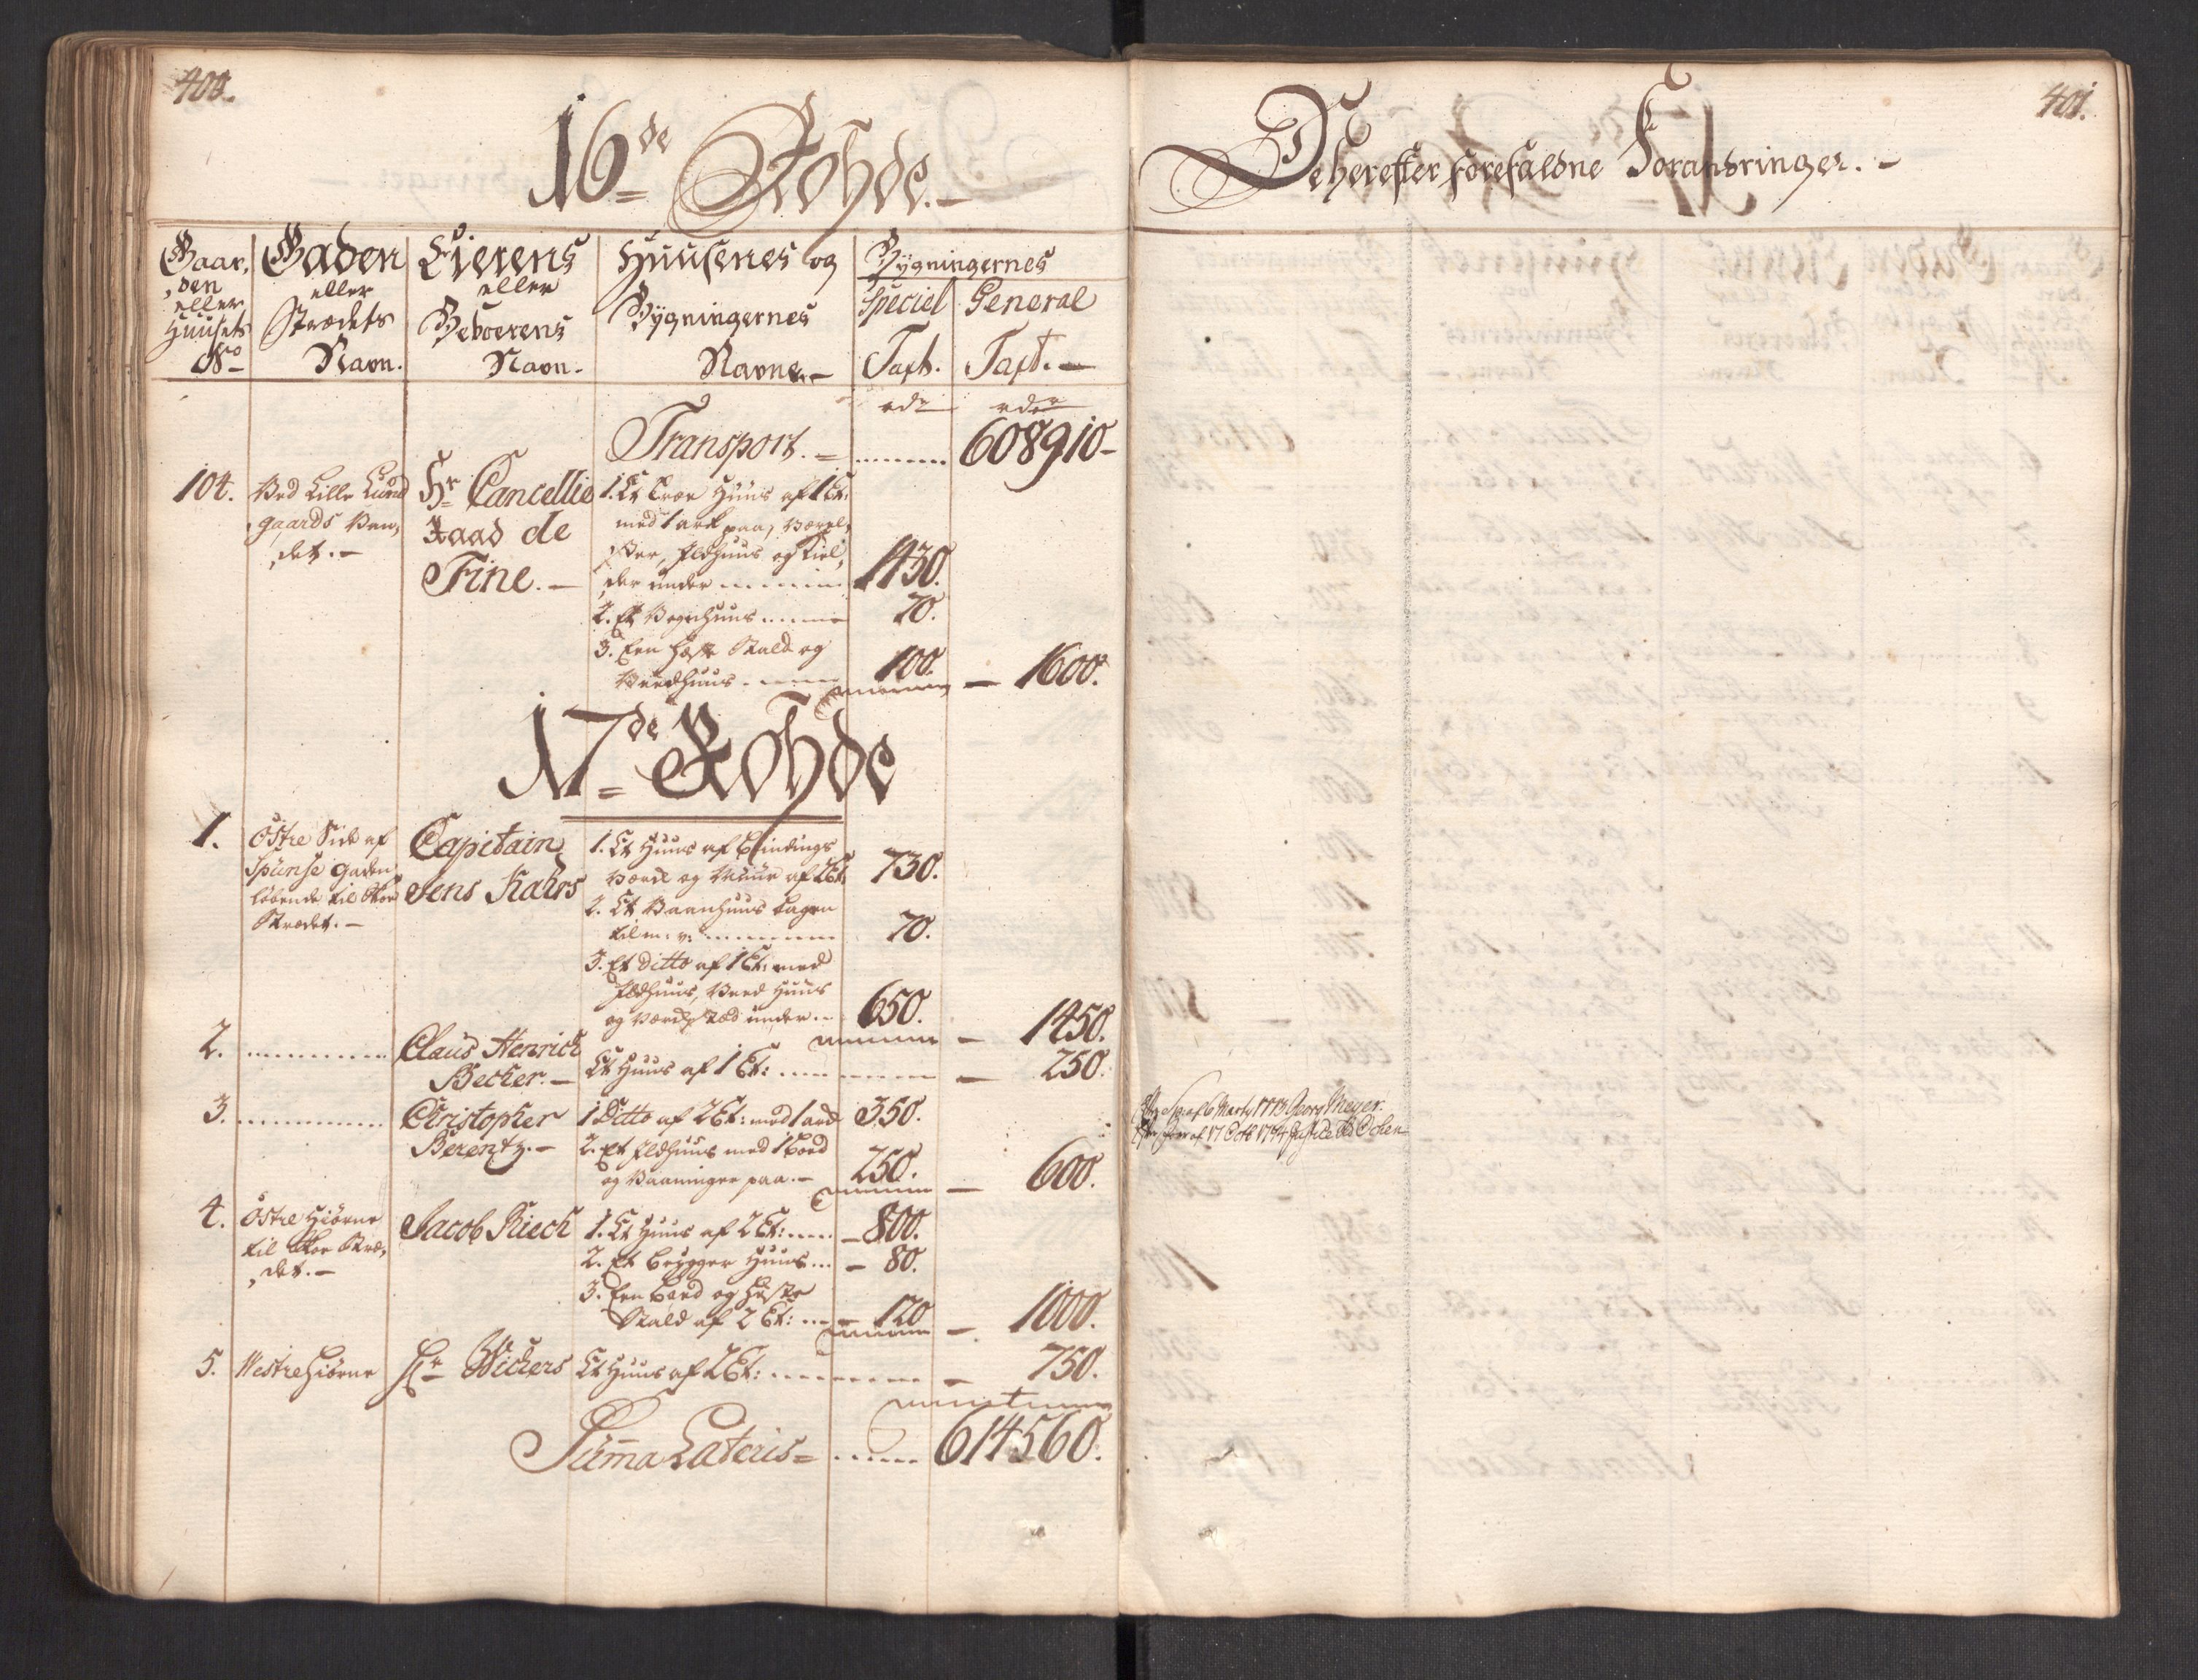 400.
16de Rohde.
Gaar,
den
eller
Huusets
No
Gaden
eller
Strædets
Navn.
Eierens
eller
Beboerens
Navn.
Huusenes og
Bygningernes
Navne.
Bygningernes
Speciel
Taxt.
General
Taxt.
rdr
rdr
Transport. 608910
104.
Ved Lille Lund
gaards Van,
det.
Hr Cancellie
Raad de
Fine.
1. Et Træe Huus af 1 Et:
med 1 ark paa, Værel,
ser, Ildhuus og Kiel,
der under 1430.
2. Et Vognhuus 70.
3. Een Heste Stald og
Veedhuus 100. 1600.
17de Rohde
1.
Östre Side af
Spunse gaden
løbende til Koe
Strædet.
Capitain
Jens Kahrs
1. Et Huus af Bindings
Værk og Muur af 2 Et: 730.
2. Et Vaanhuus bagen
til m: v: 70.
3. Et Ditto af 1 Et: med
Ildhuus, Veed Huus
og under 650. 1450.
2.
Claus Henrich
Becker.
Et Huus af 1 Et: 250.
3.
Christopher
Berentz.
1 Ditto af 2 Et: med 1 ark 350.
2. Et Ildhuus med 1 Boed
og Vaaninger paa. 250. 600.
4.
Östre Hiörne
til Koe Stræ,
det.
Jacob Riech
1. Et Huus af 2 Et: 800.
2. Et Brygger Huus 80.
3. Een Boed og Heste
Stald af 2 Et: 120 1000.
5. Westre Hiörne
Hr Wichers
Et Huus af 2 Et: 750.
Summa Lateris 614560.
401.
De herefter forefaldne Forandringer.
Efter Skiøde af 6 Marty 1773. Georg Meyer.
Efter Skiøde af 17 Octb 1794